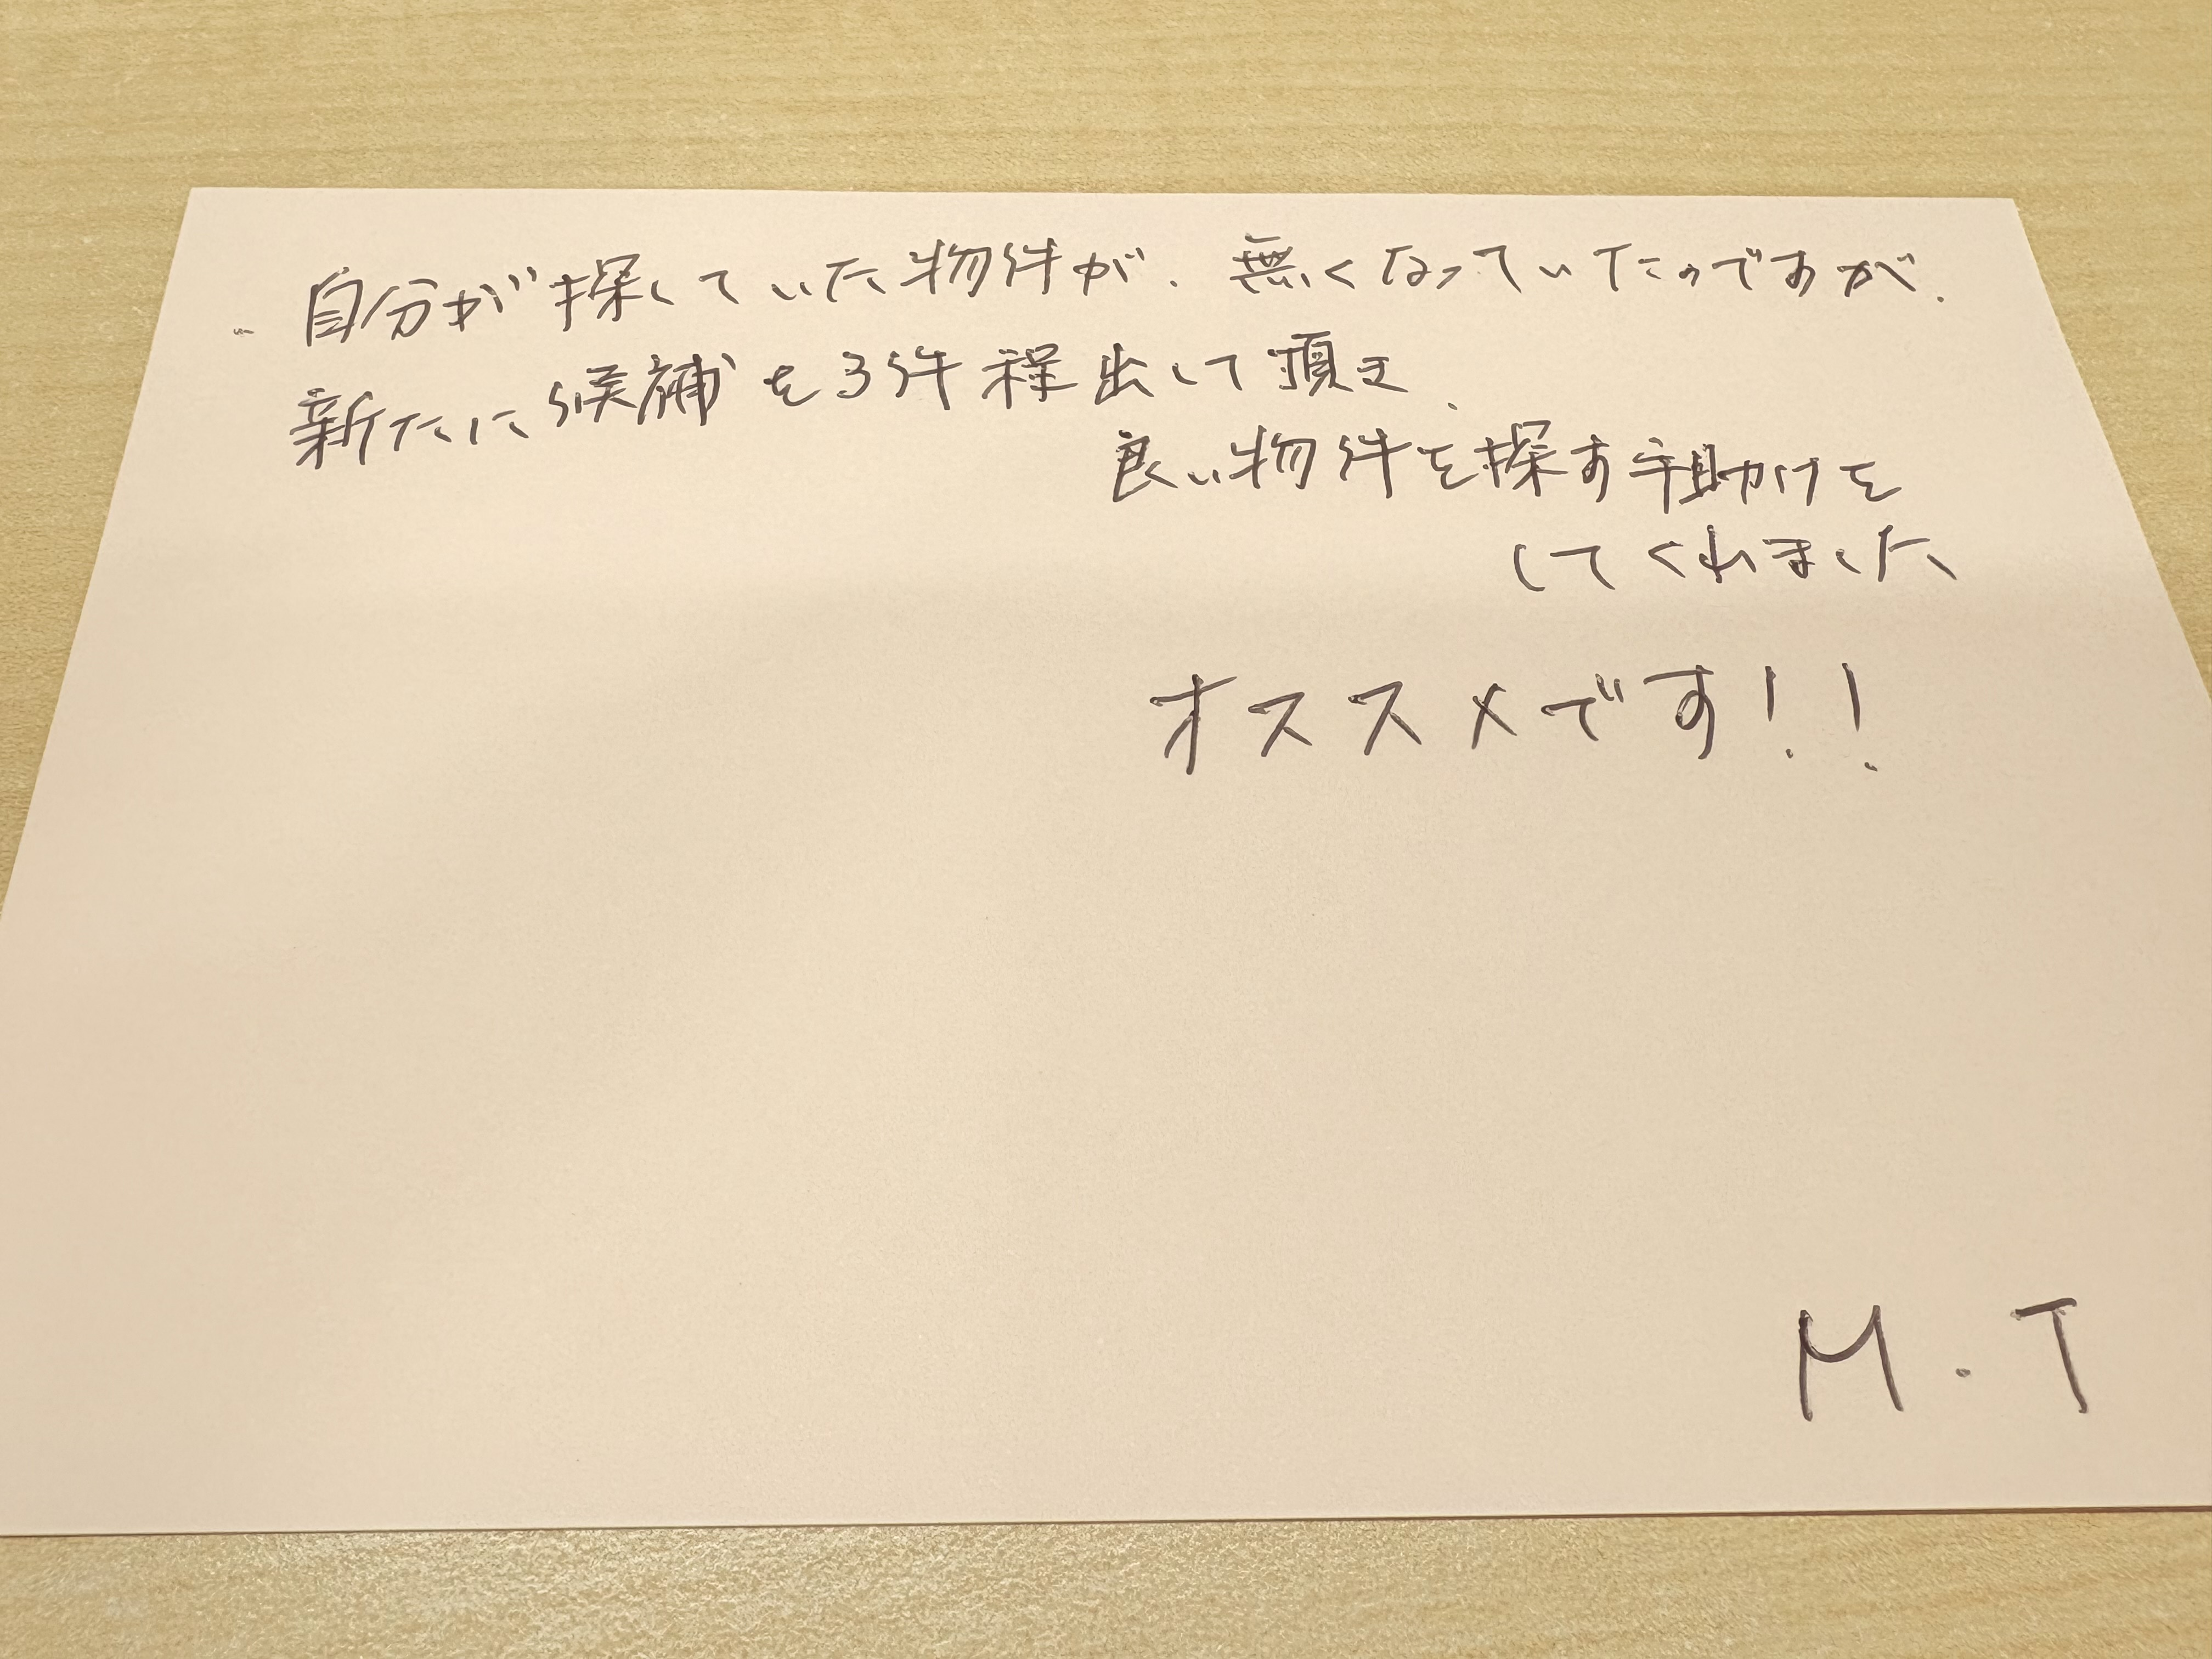 自分が探していた物件が、無くなっていたのですが、
新たに候補を3件程出して頂き、
良い物件を探す手助けを
してくれました
オススメです!!
M.T